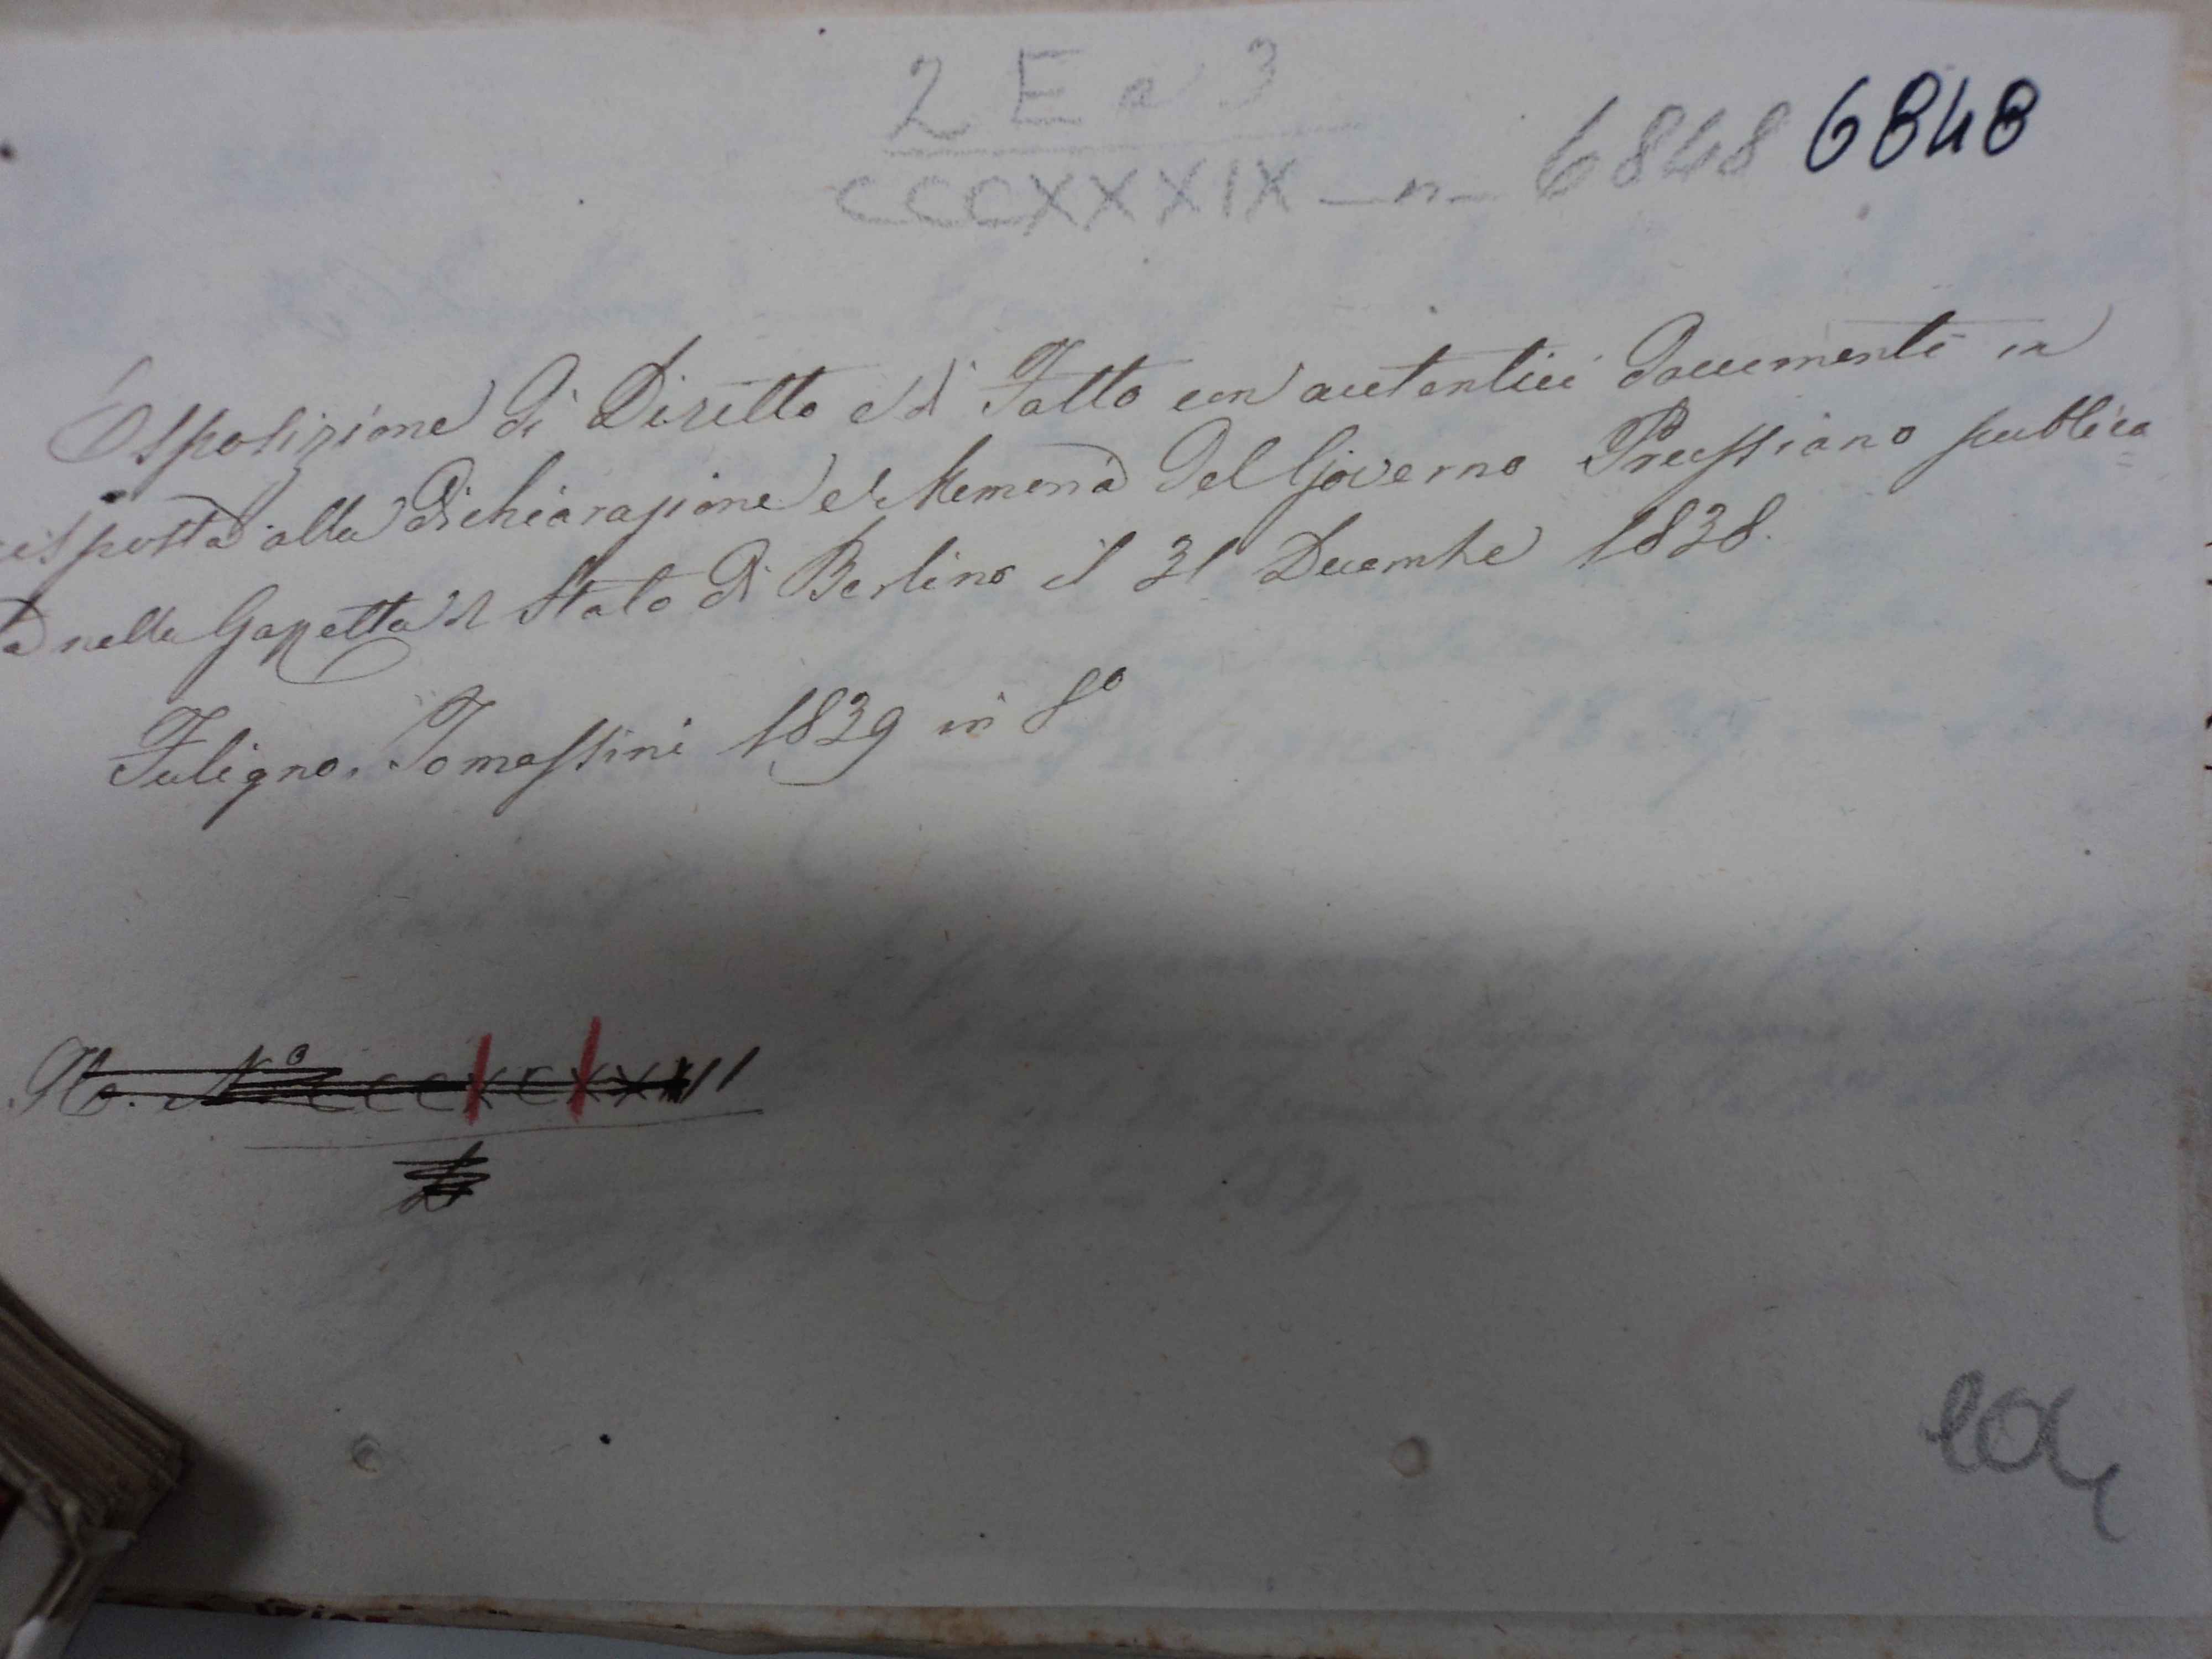 2 E a 3
CCCXXXIX — n — 6848 6848
Esposizione di Diritto e di Fatto con autentici documenti in
risposta alla Dichiarazione e Memoria del Governo Prussiano pubblica=
ta nella Gazzetta di Stato di Berlino il 31 Decembe 1838.
Fuligno. Tomassini 1839 in 8º
Nº